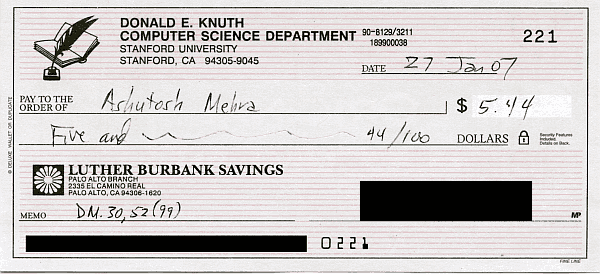 DONALD E. KNUTH
COMPUTER SCIENCE DEPARTMENT
STANFORD UNIVERSITY
STANFORD, CA 94305-9045
90-8129/3211
189900038
221
DATE 27 Jan 07
PAY TO THE ORDER OF Ashutosh Mehra $ 5.44
Five and 44/100 DOLLARS
Security Features Included. Details on Back.
© DELUXE WALLET OR DUPLICATE
LUTHER BURBANK SAVINGS
PALO ALTO BRANCH
2335 EL CAMINO REAL
PALO ALTO, CA 94306-1620
MEMO DM.30,52(99)
MP
0221
FINE LINE